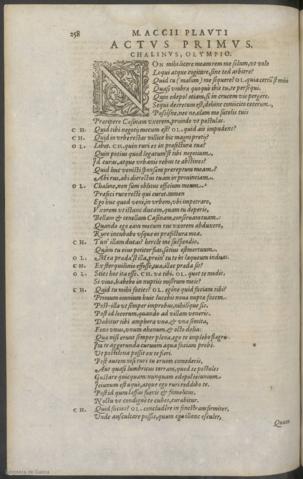 258
M. ACCII PLAVTI
ACTVS PRIMVS.
CHALINVS, OLYMPIO.
NON mihi licere meam rem me solum, ut volo
Loqui atque cogitare, sine ted arbitro?
Quid tu (malum) me sequere? OL. quia certū'st mihi
Quasi umbra quoquo ibis tu, te persequi.
Quin edepol etiam, si in crucem vis pergere,
Sequi decretum est, dehinc conicito ceterum,
Possisne, nec-ne, clam me sutelis tuis
Praeripere Casinam uxorem, proinde ut postulas.
CH. Quid tibi negotij mecum est? OL. quid ais impudens?
CH. Quid in urbe reptas villice
OL. Lubet. CH. quin ruri es in praefectura tua?
Quin potius quod legatum'st tibi negotium,
Id curas, atque urbanis rebus te abstines?
Huc mihi venisti sponsam praereptum meam?
Abi rus, abi
OL. Chaline, non sum oblitus officium meum.
Praefeci ruri recte qui curet tamen.
Ego huc quod veni, in urbem, si impetrare,
Vxorem ut istanc ducam, quam tu deperis,
Bellam et tenellam Casinam, conservam tuam,
Quando ego eam mecum rus uxorem abduxero,
Rure incubabo usque in praefectura mea.
CH. Tun' illam ducas? hercle me suspendio,
Quàm tu eius potitor fias, satius est mortuum.
OL. Mea praeda'st illa, proin' tu te in laqueum induas.
CH. Ex sterquilinio effosse, tua illaec praeda sit?
OL. Scies hoc ita esse. CH. vae tibi. OL. quot te modis,
Si vivo, habebo in nuptiis miserum meis?
CH. Quid tu mihi facies? OL. egóne quid faciam tibi?
Primum omnium huic lucebis novae nuptae facem.
Post id locorum, quando ad villam veneris,
Dabitur tibi amphora una, &amp; una semita,
Fons unus, unum ahenum, &amp; octo dolia:
Quae nisi erunt semper plena, ego te implebo flagris.
Post autem ruri
Aut quasi lumbricus terram, quod te postules
Gustare quicquam: nunquam edepol ieiunium
Ieiunum est aequè, atque ego te ruri reddibo.
Post id quum lassus fueris &amp; famelicus,
Noctu ut condignè te cubes, curabitur.
CH. Quid facies? OL. concludêre in fenestram firmiter,
Vnde auscultare possis, quum ego illanc
Quum